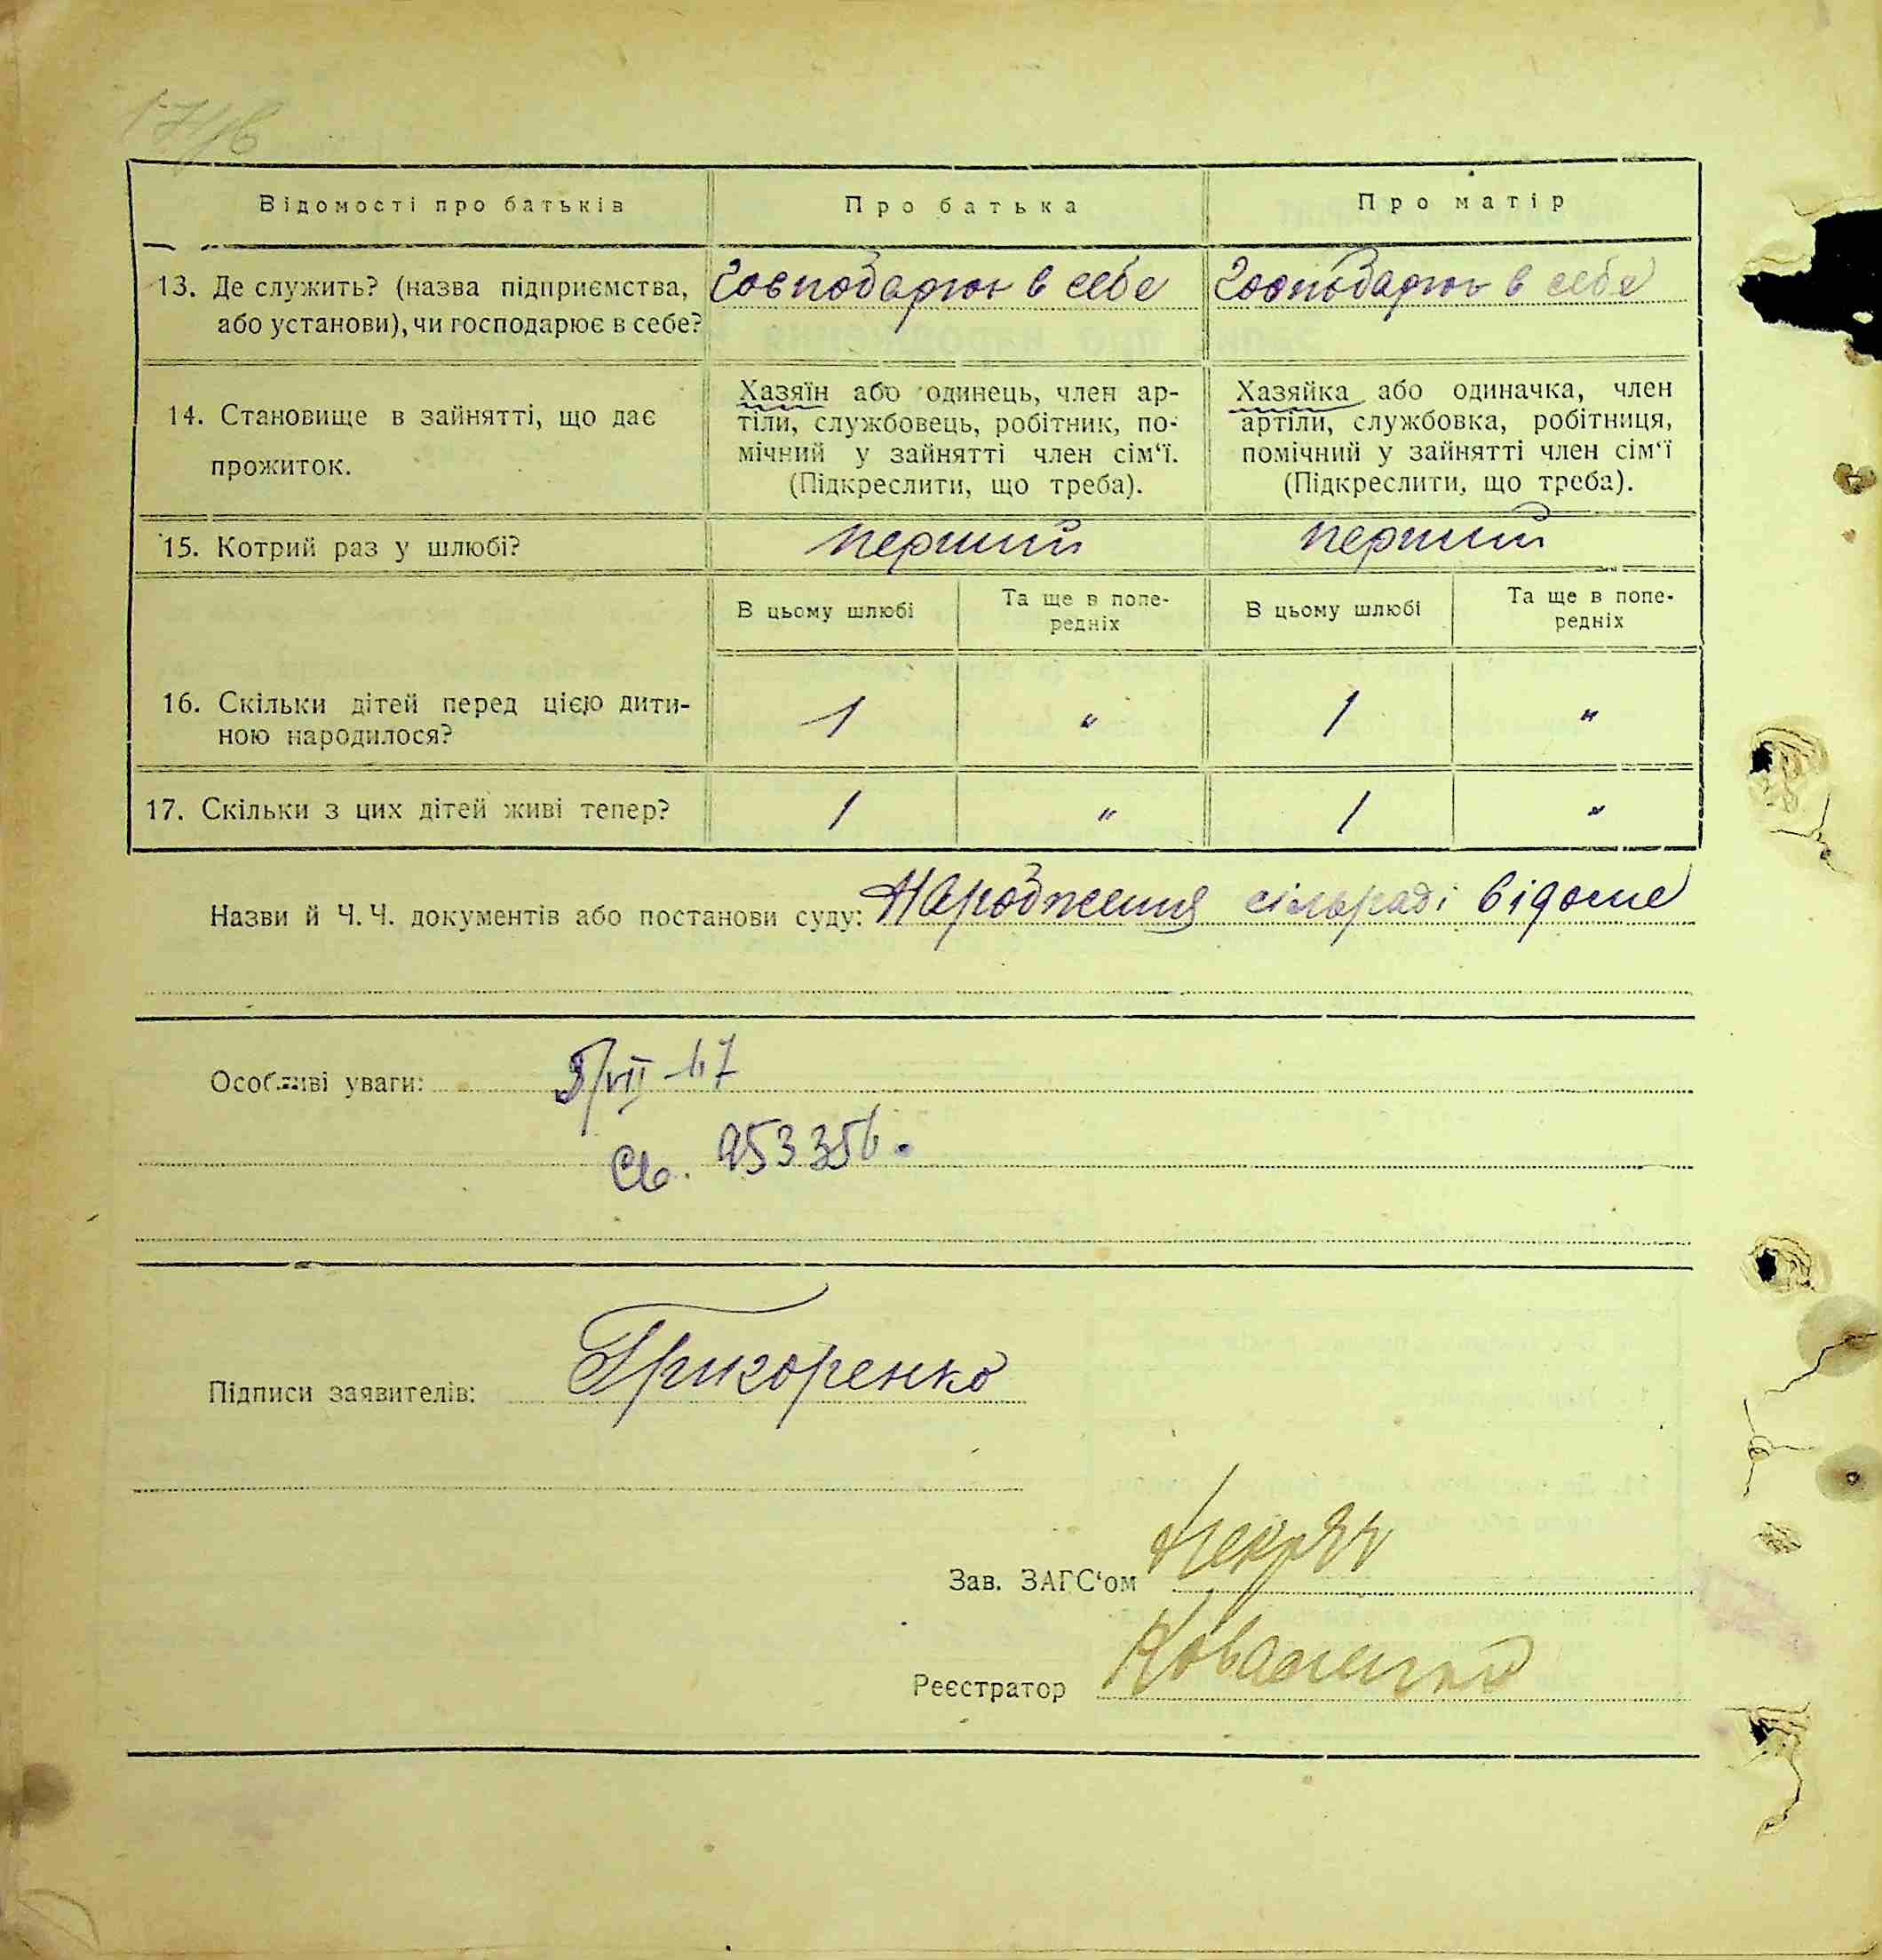 Відомості про батьків
Про батька
Про матір
13. Де служить? (назва підприємства, або установи), чи господарює в себе?
Господарює в себе
Господарює в себе
14. Становище в зайнятті, що дає
прожиток.
Хазяїн або одинець, член ар-
тіли, службовець, робітник, по-
мічний у зайнятті член сім'ї.
(Підкреслити, що треба).
Хазяйка або одиначка, член
артіли, службовка, робітниця,
помічний у зайнятті член сім'ї
(Підкреслити, що треба).
15. Котрий раз у шлюбі?
перший
перший
В цьому шлюбі
Та ще в попе-
редніх
В цьому шлюбі
Та ще в попе-
редніх
16. Скільки дітей перед цією дити-
ною народилося?
1 " 1 "
17. Скільки з цих дітей живі тепер?
1 " 1 "
Назви й Ч. Ч. документів або постанови суду: Народження сільраді відоме
Особливі уваги: 5/VII-47
Св. 953356.
Підписи заявителів: Григоренко
Зав. ЗАГС'ом
Реєстратор Коваленко